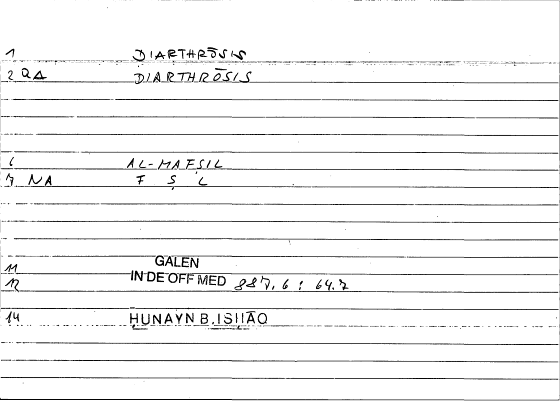 1 DIARTHRŌSIS
2 QΔ DIARTHRŌSIS
6 AL-MAFṢIL
7 NA F Ṣ L
11 GALEN
12 IN DE OFF MED 887.6 : 64.7
14 ḤUNAYN B. ISḤĀQ